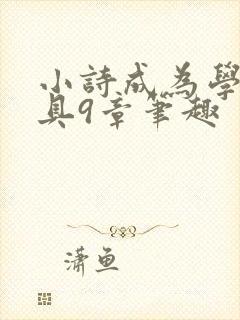 小詩成為學
具9章筆趣
瀟魚